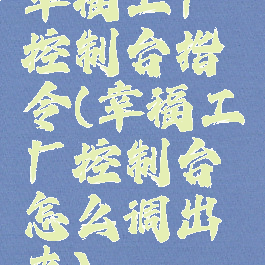 幸福工厂
控制台指
令(幸福工
厂控制台
怎么调出
来)